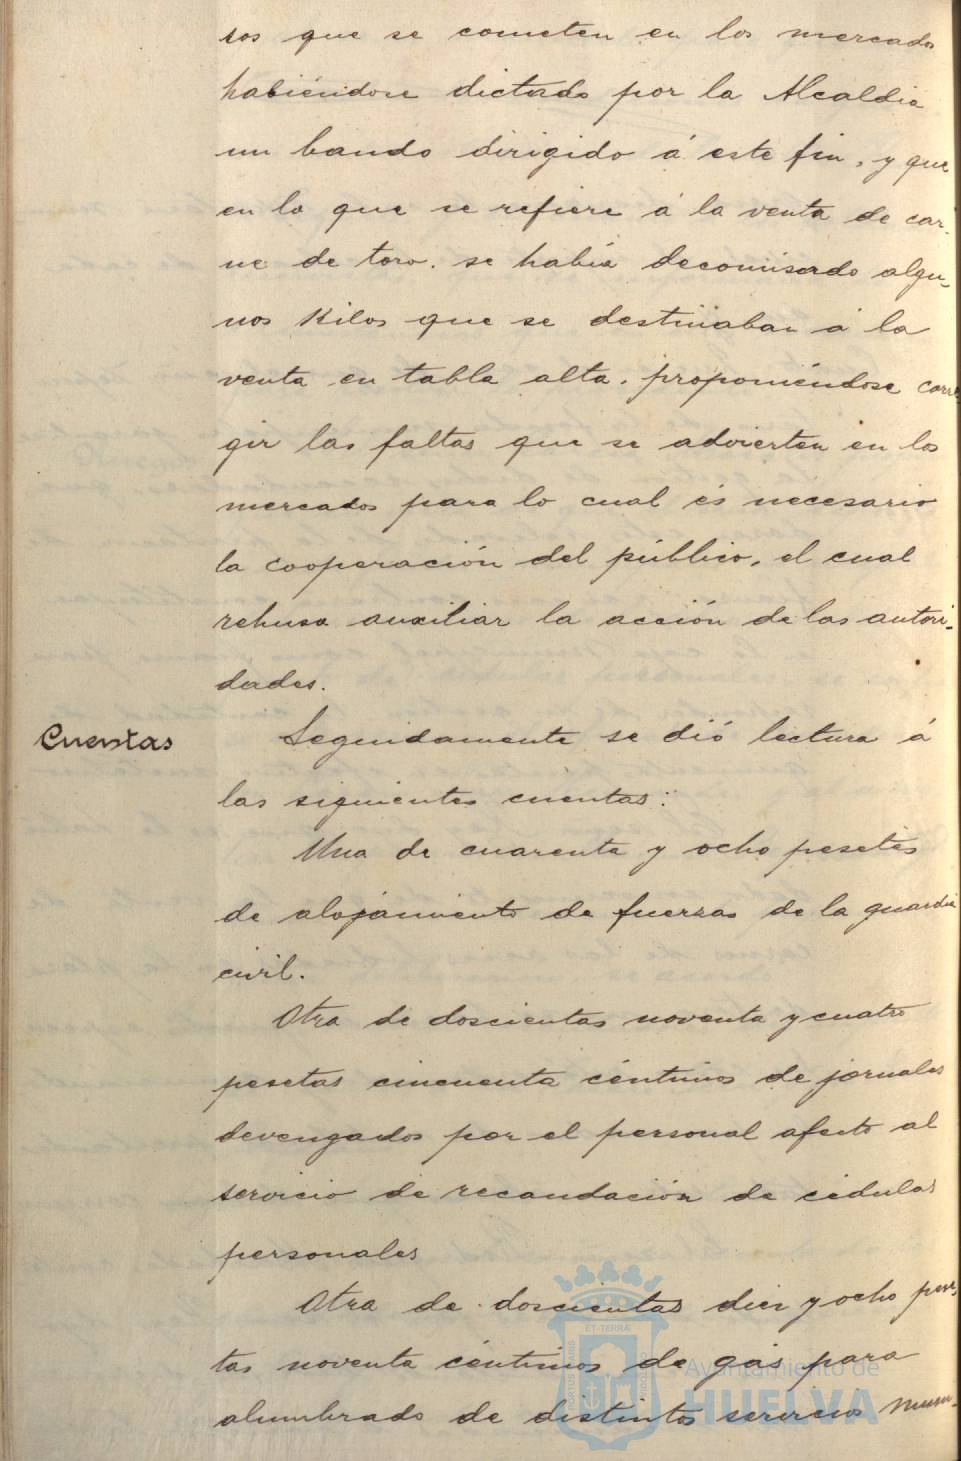 sos que se cometen en los mercados
habiéndose dictado por la Alcaldia
un bando dirigido á este fin, y que
en lo que se refiere á la venta de car-
ne de toro. se habia decomisado algu-
nos Kilos que se destinaban á la
venta en tabla alta. proponiéndose corre
gir las faltas que se advierten en los
mercados para lo cual és necesario
la cooperación del público, el cual
rehusa auxiliar la acción de las autori-
dades.
Cuentas
Seguidamente se dió lectura á
las siguientes cuentas:
Una de cuarenta y ocho pesetas
de alojamiento de fuerzas de la guardia
civil.
Otra de doscientas noventa y cuatro
pesetas cincuenta céntimos de jornales
devengados por el personal afecto al
servicio de recaudación de cédulas
personales
Otra de doscientas diez y ocho pese
tas noventa céntimos de gas para
alumbrado de distintos servicios muni-
ET·TERRÆ
PORTUS MARIS
CUSTODIA
Ayuntamiento de
HUELVA